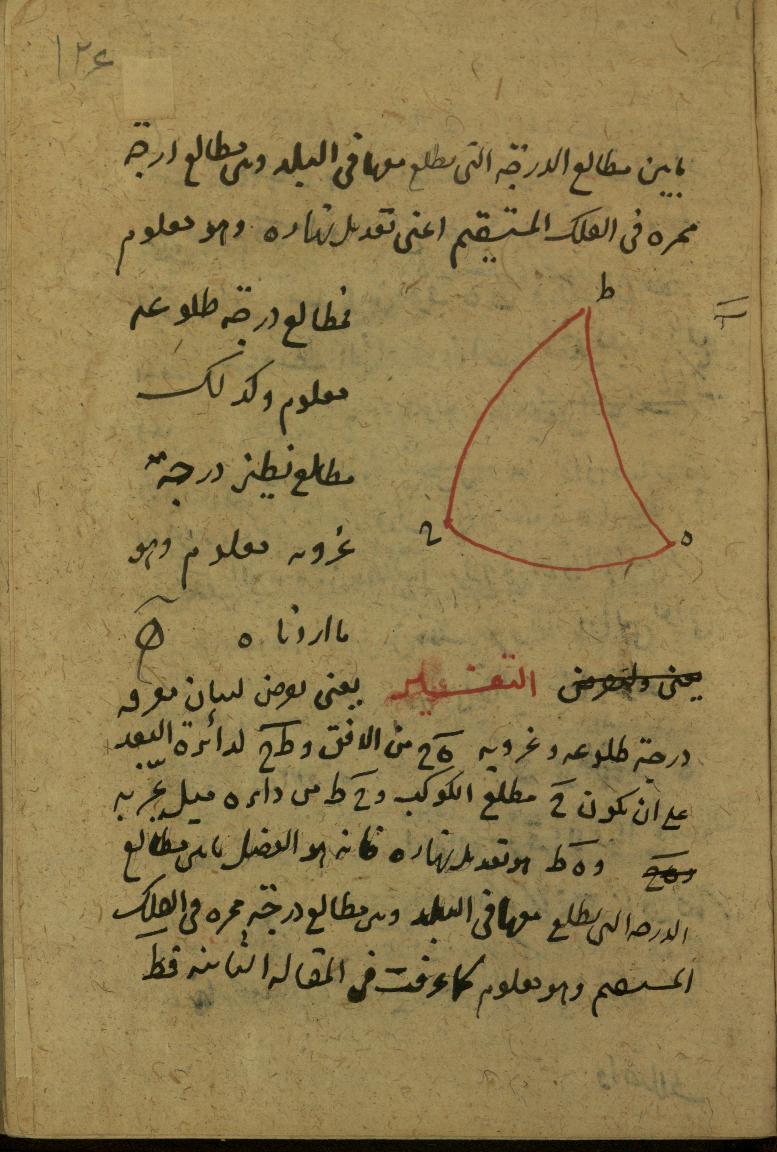 ١٢٤
مابين مطالع الدرجة التى يطلع معها فى البلد وبين مطالع درجة
ممره فى الفلك المستقيم اعنى تعديل نهاره وهو معلوم
ط
فمطالع درجة طلوعه
معلوم وكذلك
مطالع نظير درجة
ح ه
غروبه معلوم وهو
ما اردناه
يعنى التفسير يعنى نفرض لبيان معرفة
درجة طلوعه وغروبه ه ح من الافق و ط ح لدائرة البعد
على ان يكون ح مطلع الكوكب و ح ط من دائرة ميل
و ه ط هو تعديل نهاره فانه هو الفضل بين مطالع
الدرجة التى يطلع معها فى البلد وبين مطالع درجة ممره فى الفلك
المستقيم وهو معلوم كما عرفت فى المقالة الثانية